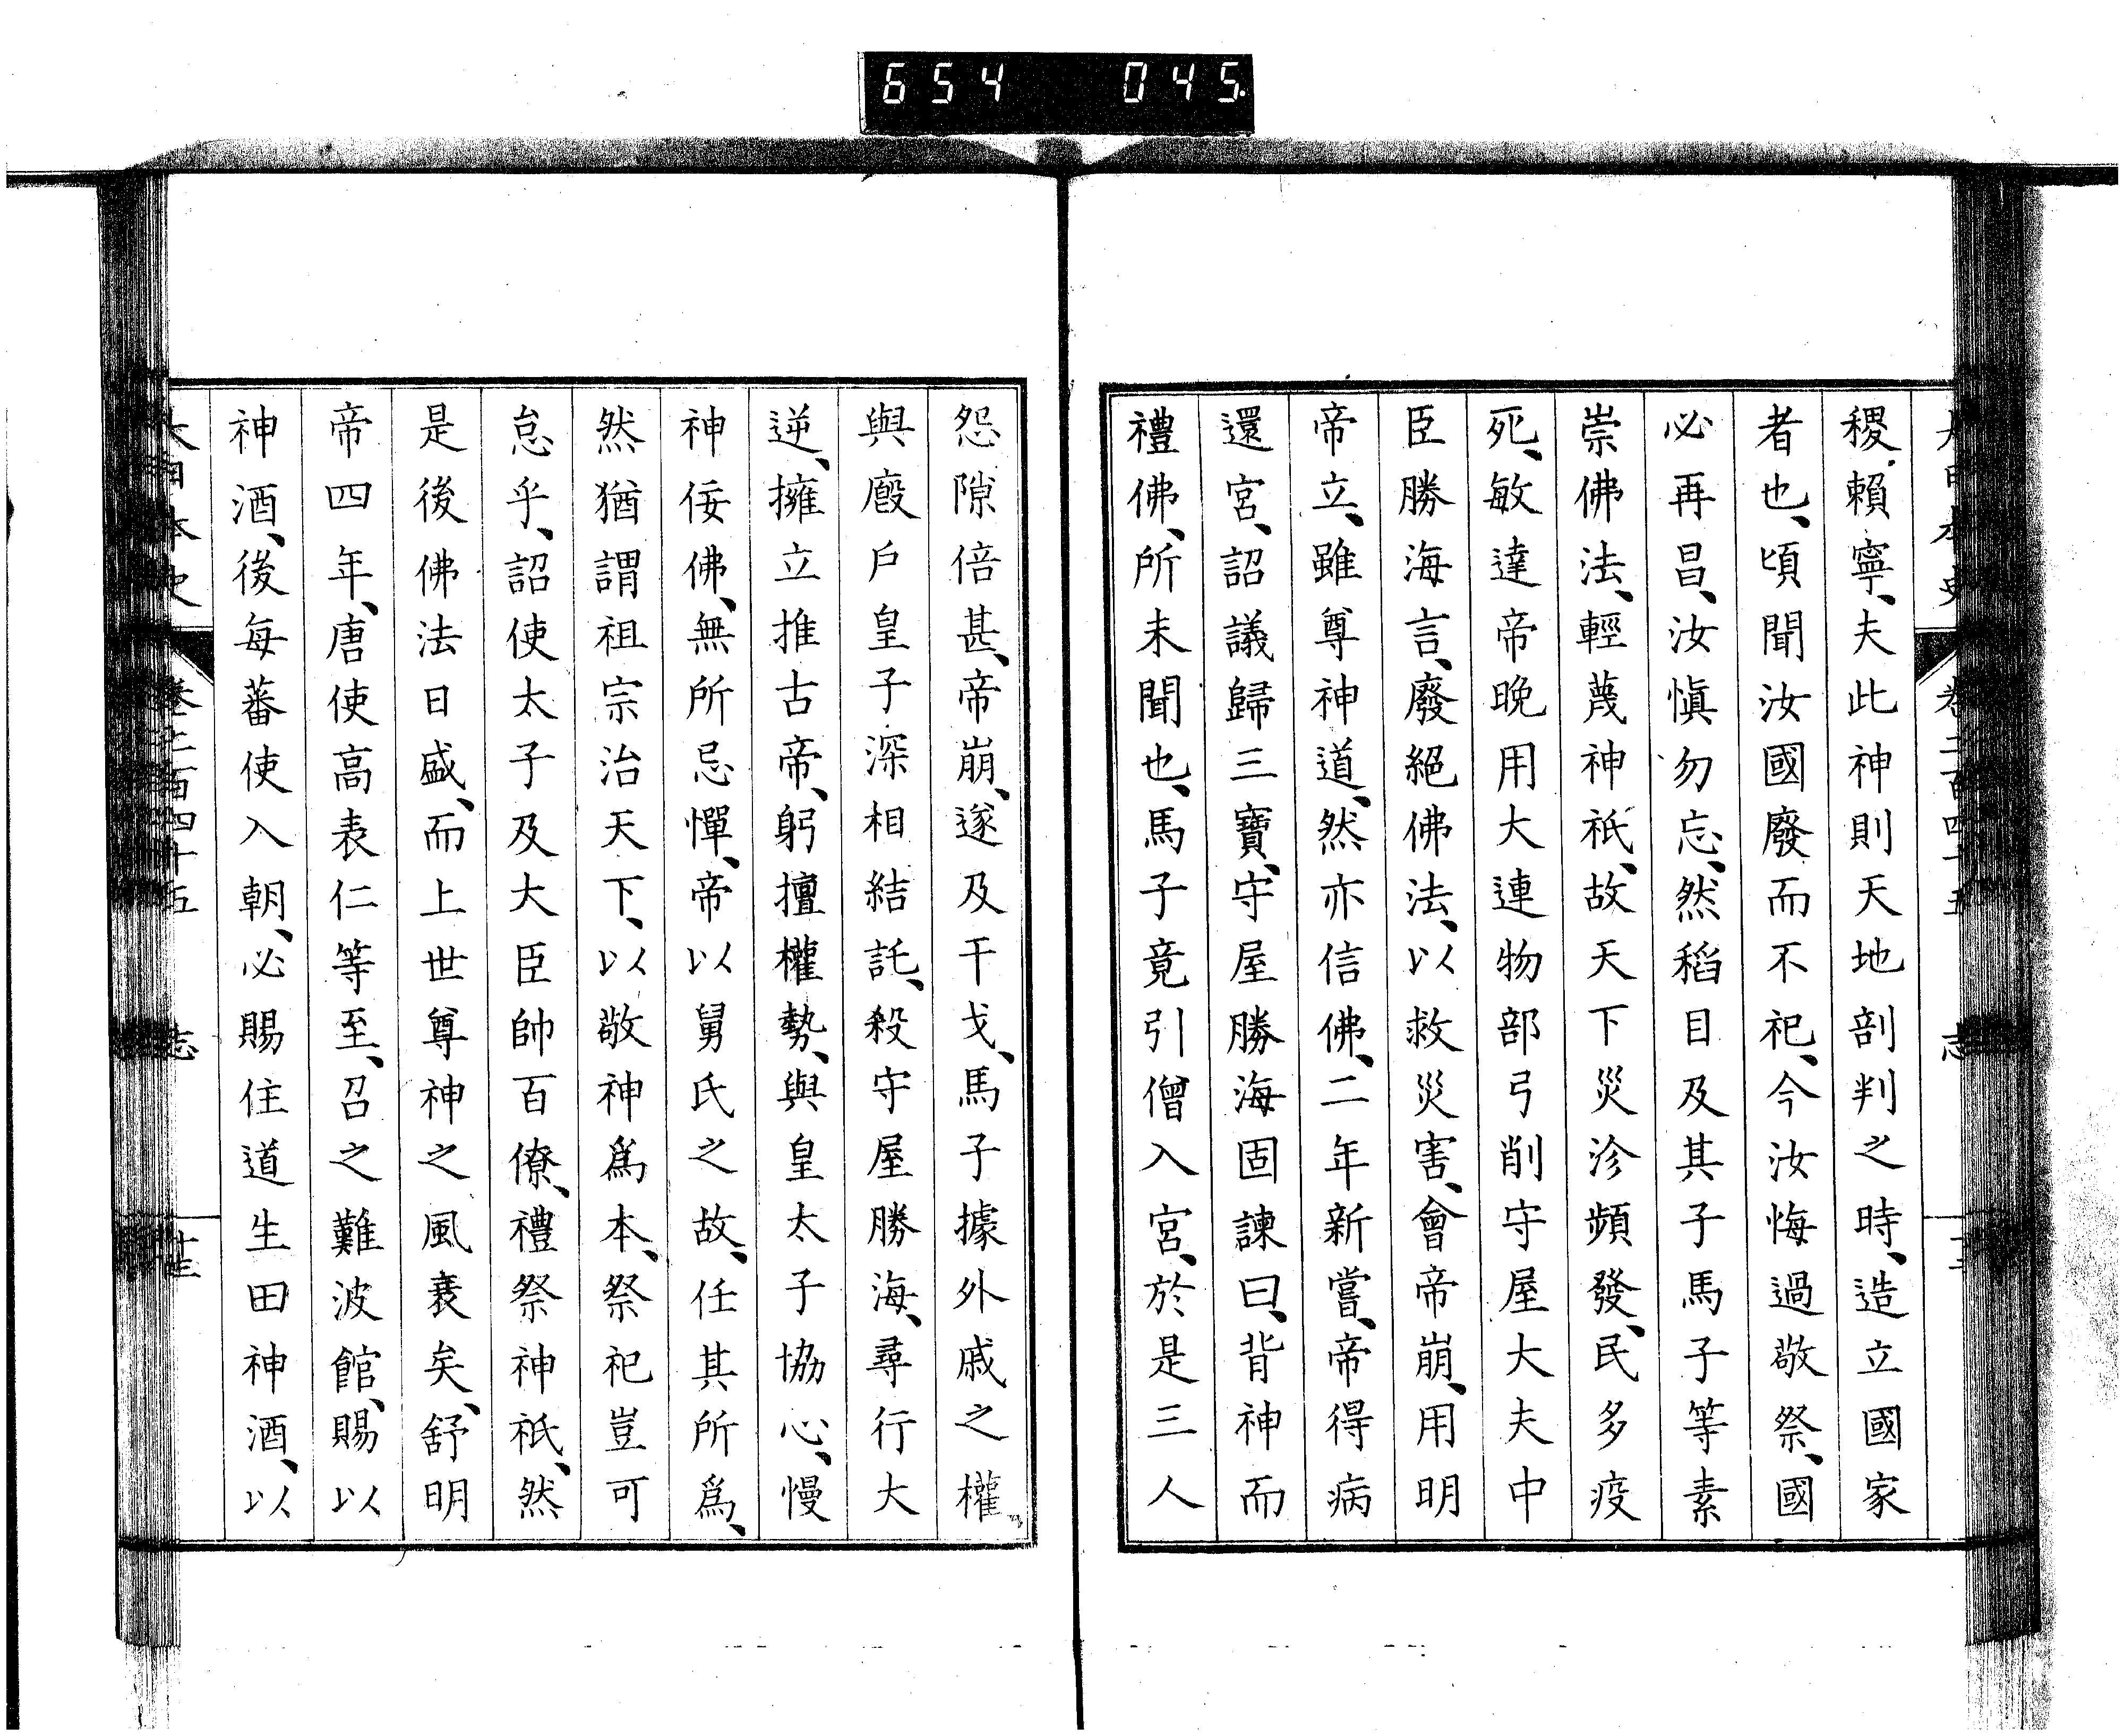 654 045
稷賴寧、夫此神則天地剖判之時、造立國家
者也、頃聞汝國廢而不祀、今汝悔過敬祭、國
必再昌、汝愼勿忘、然稻目及其子馬子等素
崇佛法、輕蔑神祇、故天下災沴頻發、民多疫
死、敏達帝晩用大連物部弓削守屋大夫中
臣勝海言、廢絕佛法、以救災害、會帝崩、用明
帝立、雖尊神道、然亦信佛、二年新嘗、帝得病
還宮、詔議歸三寶、守屋勝海固諫曰、背神而
禮佛、所未聞也、馬子竟引僧入宮、於是三人
怨隙倍甚、帝崩、遂及干戈、馬子據外戚之權
與廐戶皇子深相結託、殺守屋勝海、尋行大
逆、擁立推古帝、躬擅權勢、與皇太子協心、慢
神佞佛、無所忌憚、帝以舅氏之故、任其所爲、
然猶謂祖宗治天下、以敬神爲本、祭祀豈可
怠乎、詔使太子及大臣帥百僚、禮祭神祇、然
是後佛法日盛、而上世尊神之風衰矣、舒明
帝四年、唐使高表仁等至、召之難波館、賜以
神酒、後每蕃使入朝、必賜住道生田神酒、以
大日本史 卷之二百四十五 志